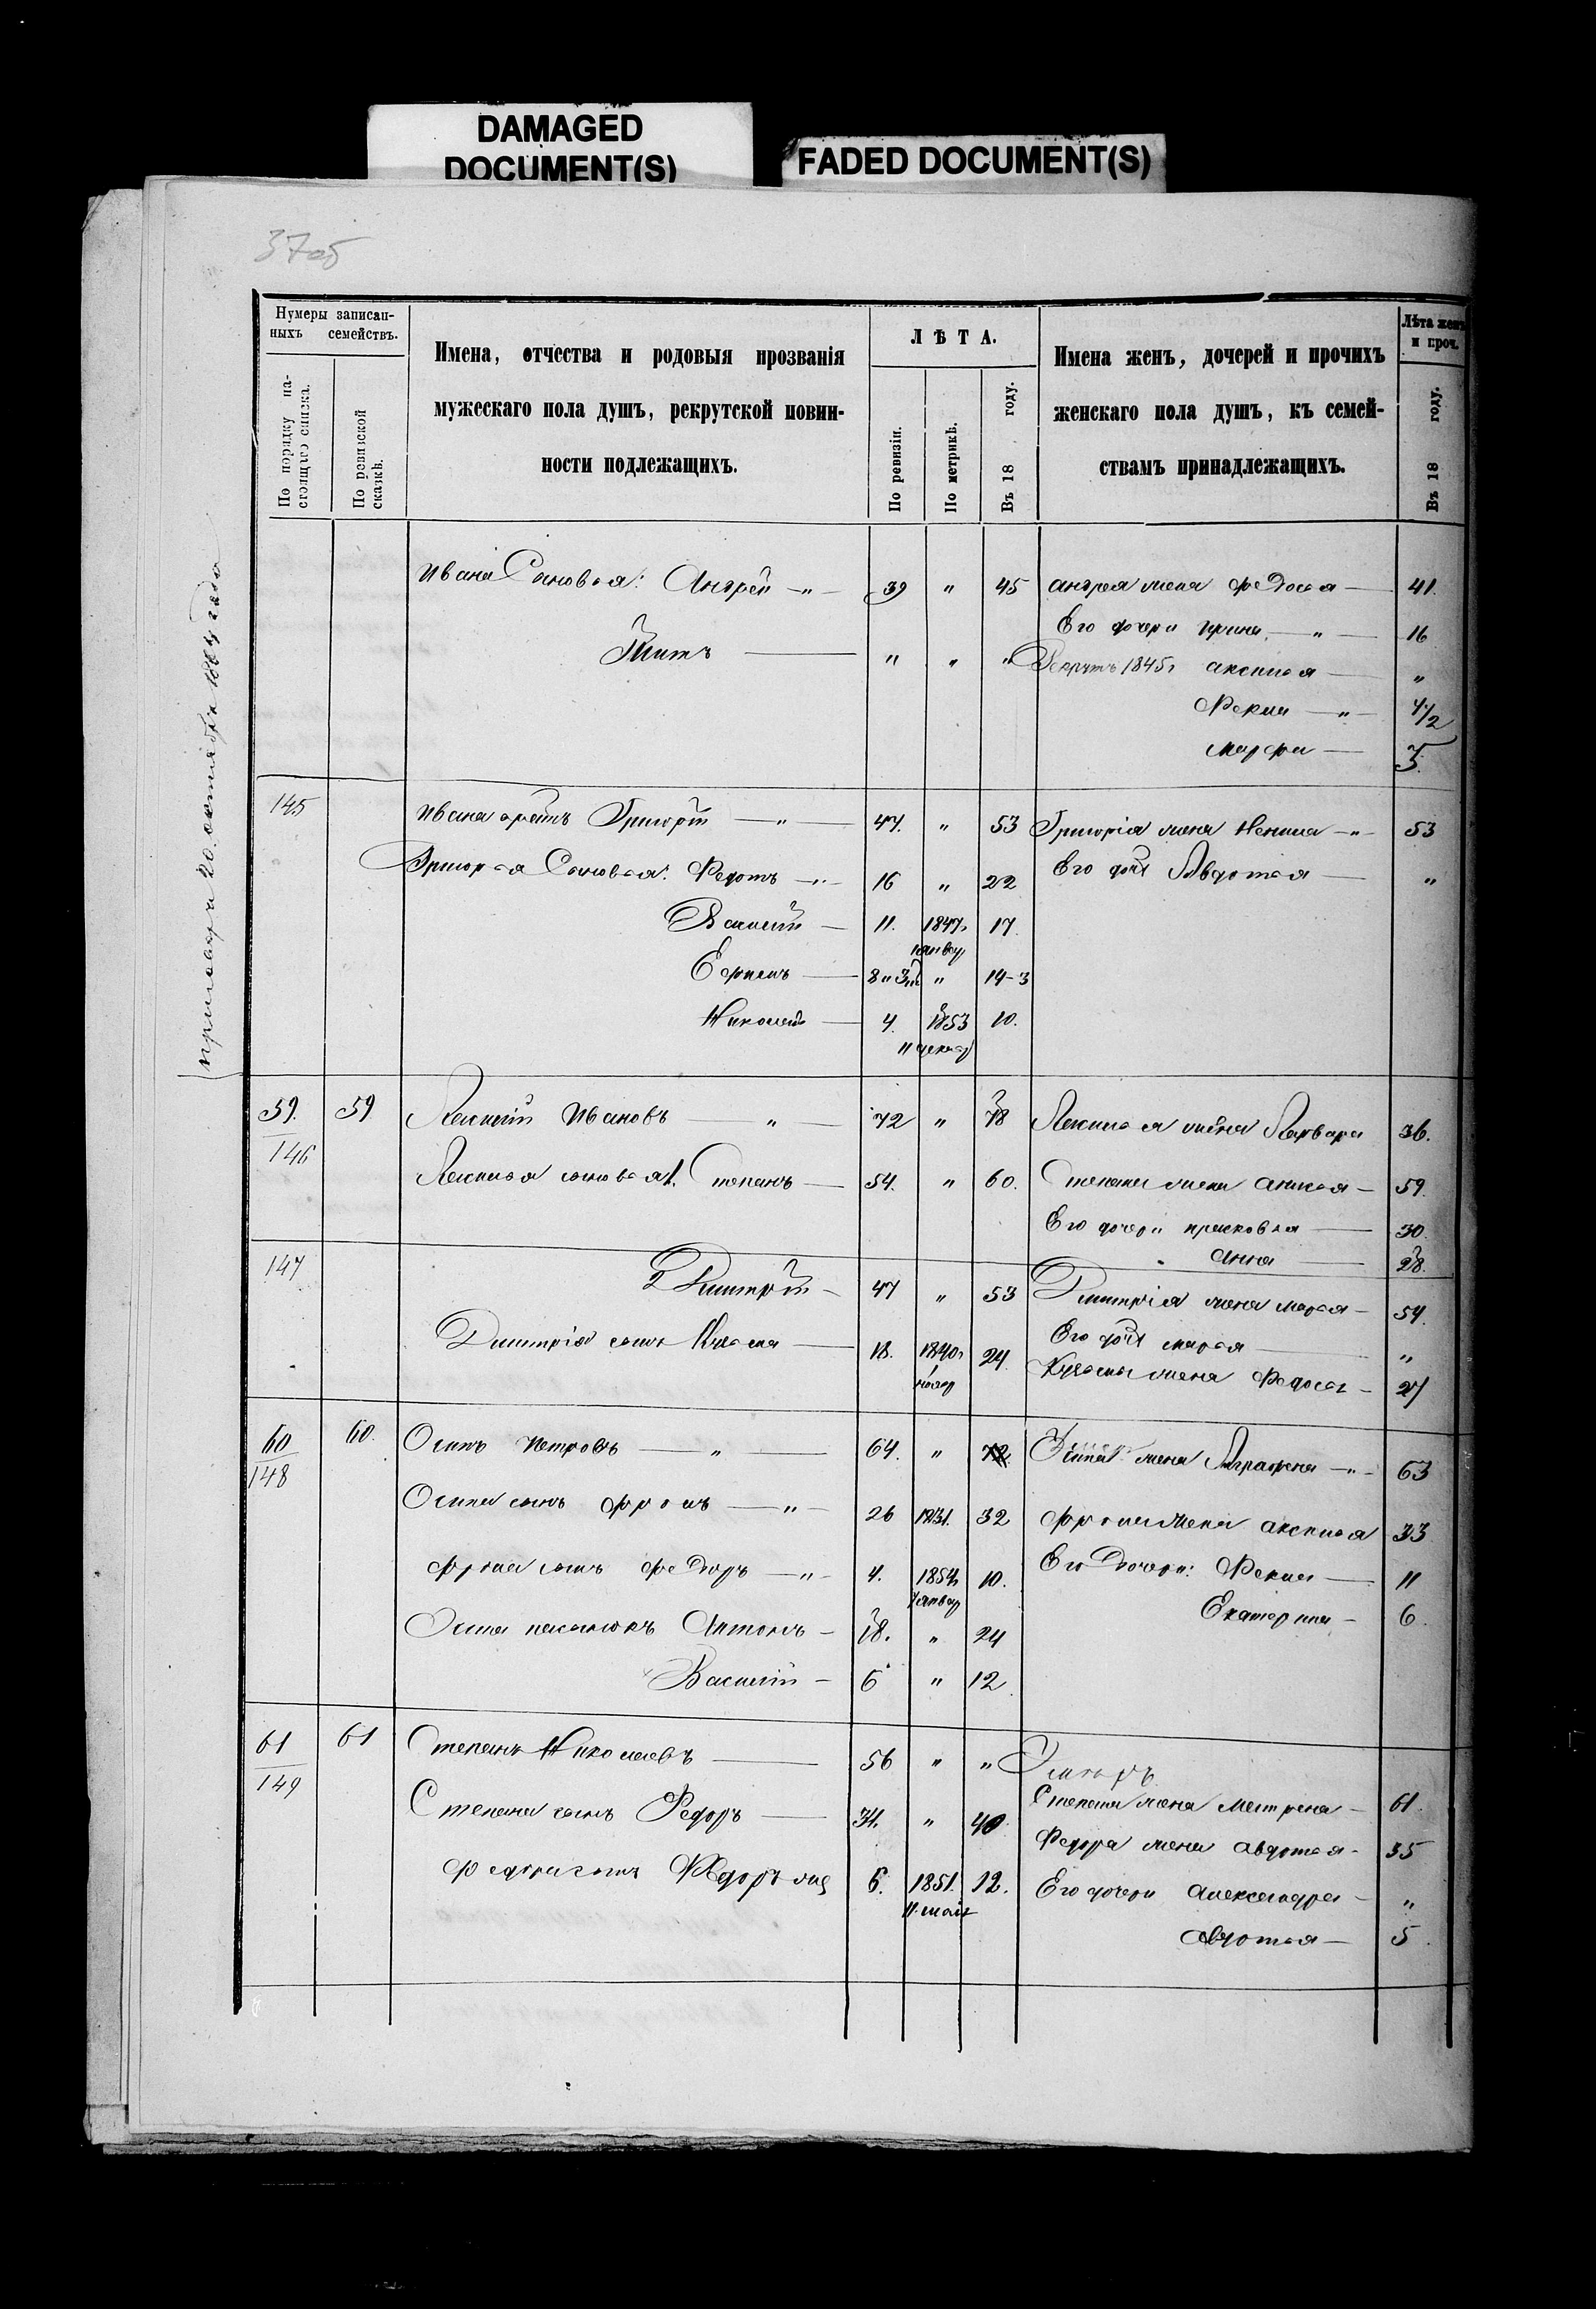 DAMAGED
DOCUMENT(S)
FADED DOCUMENT(S)
37об
Нумеры записан-
ныхъ семействъ.
По порядку на-
стоящаго списка.
По ревизской
сказкѣ.
Имена, отчества и родовыя прозванія
мужескаго пола душъ, рекрутской повин-
ности подлежащихъ.
ЛѢТА.
По ревизіи.
По метрикѣ.
Въ 18 году.
Имена женъ, дочерей и прочихъ
женскаго пола душъ, къ семей-
ствамъ принадлежащихъ.
Лѣта женъ
и проч.
Въ 18 году.
Ивана Сыновья: Андрей — " — 39 " 45 Андрея жена Федосья — 41.
Его дочери Ирина — " — 16
Титъ — " " " Рекрутъ 1845г Аксинья — "
Фекла — "
Марфа —
145 Ивана братъ Григорій — " — 47. " 53 Григорія жена — " — 53
Григорья Сыновья: Федотъ — " — 16 " 22 Его дочь Авдотья — "
Василій — 11. 1847г 17.
январ
Ефимъ — 8 и 3 м " 14-3
Николай — 4. 1853 10.
11 декаб
59. 59 Алексѣй Ивановъ — " — 72 " 78 Алексѣя жена Варвара 36.
146
Алексѣя сыновья 1. Степанъ — 54. " 60. Степана жена Анисья — 59.
Его дочери Прасковья — 30.
" Анна — 28.
147 2 Дмитрій — 47 " 53 Дмитрія жена Марья — 54.
Дмитрія сынъ Кузьма — 18. 1840г 24. Его дочь Марья — "
Кузьмы жена Федосья — 27
60 60. Осипъ Петровъ — " — 64. " 72 Осипа жена Аграфена — " — 63
148
Осипа сынъ Фролъ — " — 26 1831. 32 Фрола жена Аксинья 33
Фрола сынъ Федоръ — " — 4. 1854г 10. Его Дочери: Фекла — 11
январ
Екатерина — 6.
Осипа пасынокъ Антонъ — 18. " 24
Василій — 6 " 12.
61 61 Степанъ Николаевъ — 56 " "
149
Степана жена Матрена — 61.
Степана сынъ Федоръ — 34. " 40.
Федора жена Авдотья — 35
Федора сынъ Федоръ 6. 1851. 12. Его дочери Александра — "
11. май
Авдотья — 5.